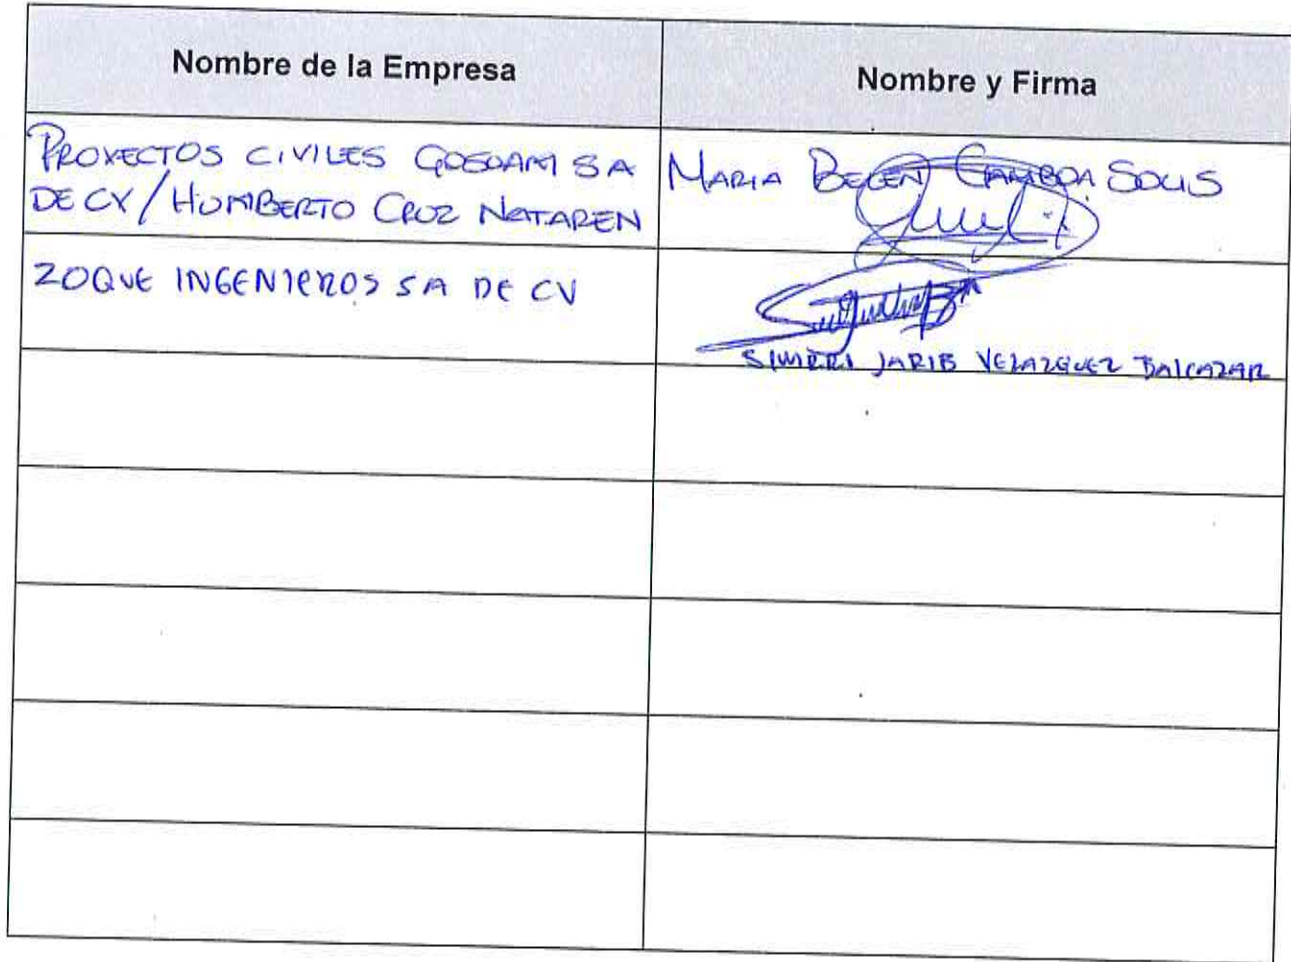 Nombre de la Empresa
Nombre y Firma
PROYECTOS CIVILES GOSDAM SA
DE CV/HUMBERTO CRUZ NATAREN
MARIA BELEN GAMBOA SOLIS
ZOQUE INGENIEROS SA DE CV
SIMRRI JARIB VELAZQUEZ BALCAZAR